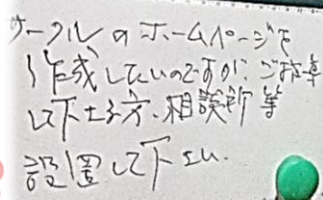 サークルのホームページを
作成したいのですが、ご指導
して下さる方、相談所等
設置して下さい。